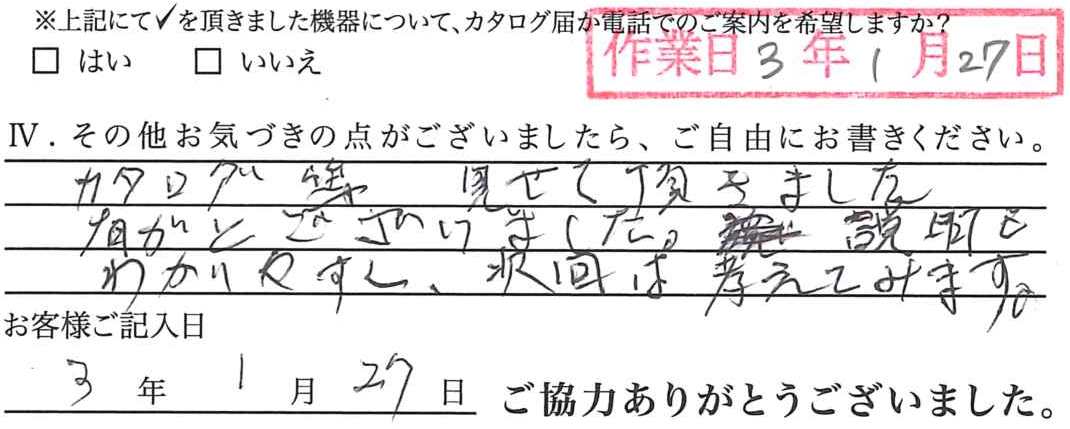 ※上記にて✓を頂きました機器について、カタログ届か電話でのご案内を希望しますか?
□ はい □ いいえ
作業日 3年1月27日
Ⅳ.その他お気づきの点がございましたら、ご自由にお書きください。
カタログ 見せて頂きました
とございました。 説明も
わかりやすく、次回は考えてみます。
お客様ご記入日
3年1月27日 ご協力ありがとうございました。